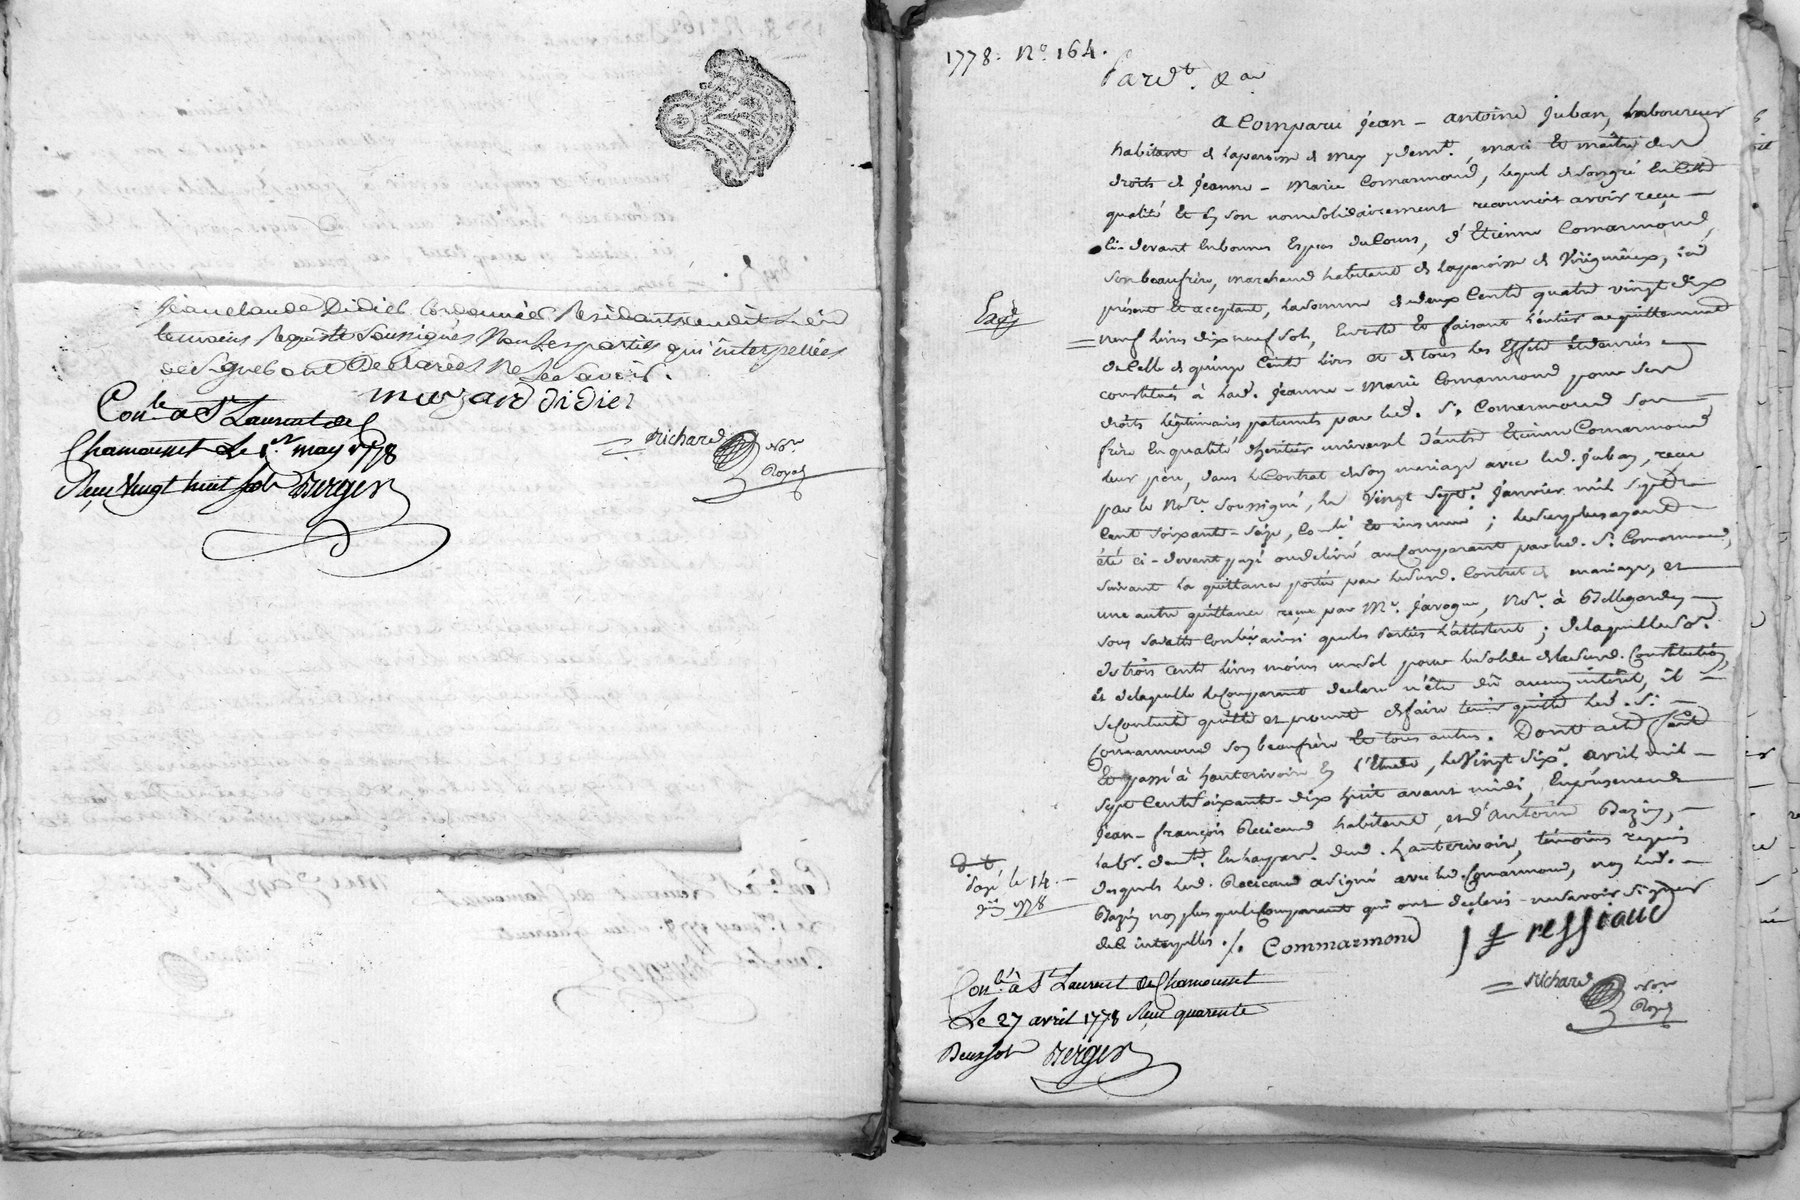 Jean Claude Didier Cordonnier Résidants
temoins Requis et Soussignés Non Les parties qui interpellées
de Signer ont Déclarées Ne Le Savoir.
muzard didier
Con.lé a S.t Laurent de
Chamousset Le 1.er may 1778
Reçu Vingt huit sols Berger
Richard No.re
Royal
1778. N.o 164.
Pard.t &.a
a Comparu Jean - antoine Juban, Laboureur
habitant de la paroisse de mey, mari et maître des
droits de Jeanne - Marie Comarmond, lequel de son gré en cette
qualité et en son nom solidairement reconnoit avoir reçu
ci-devant en bonnes Especes du Cours, d'Etienne Comarmond,
son beaufrère, marchand habitant de la paroisse de Virigneux, ici
présent et acceptant, la somme de deux Cents quatre vingt dix
Exp.ée
neuf livres dix neuf sols, en reste et faisant l'entier acquittement
de Celle de quinze Cents livres et de tous les Effets et denrées
constitués à lad. Jeanne - Marie Comarmond pour ses
droits légitimaires paternels par led. S.r Comarmond son
frère en qualité d'héritier universel d'autre Etienne Comarmond
leur père, dans le Contrat de son mariage avec led. Juban, reçu
par le No.re soussigné, le Vingt sept.e Janvier mil sept
Cent soixante-seize, Con.lé et insinué; le surplus ayant
été ci-devant payé ou délivré au Comparant par led. S.r Comarmond,
suivant la quittance portée par le susd. Contrat de mariage, et
une autre quittance reçue par M.e Javogue, No.re à Bellegarde,
sous sa datte Con.lée ainsi que les Parties l'attestent; de laquelle So.e
de trois cents livres moins un sol pour le solde de la susd. Constitution,
et de laquelle le Comparant déclare n'être dû aucun intérêt, il
se contente quitte et promet de faire tenir quitte led. S.r
Comarmond son beaufrère et tous autres. Dont acte fait
Et passé à hauterivoire En l'Etude, le Vingt Six.e avril mil
sept Cent soixante-dix huit avant midi, En présence de
Jean - françois habitant, et d'Antoine Bazin,
lab.r dem.t En la par. dud. hauterivoire, témoins requis
D.t
payé le 14.
Juin 1778
desquels led. a signé avec led. Comarmond, non led.
Bazin non plus que le Comparant qui ont déclaré ne savoir signer
de ce interpellés ./. Commarmond j f ressicaud
Richard No.re
Royal
Con.lé à S.t Laurent de Chamousset
Le 27 avril 1778 Reçu quarente
Deux sols Berger